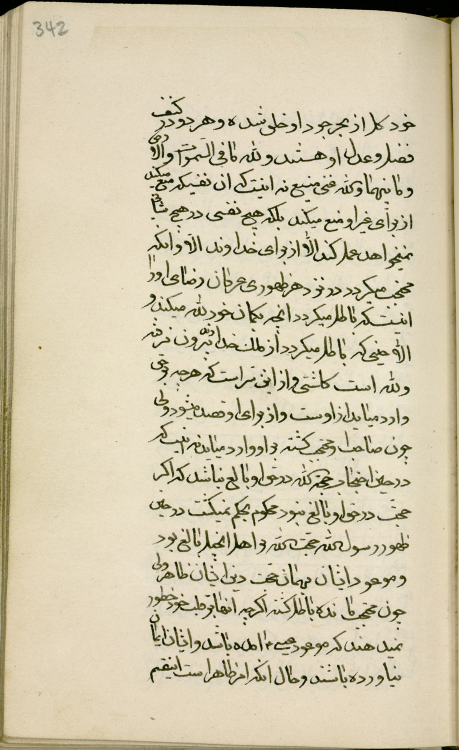 342
خود کلا از بحر جود او خلق شده و هر دو در کنف
فضل و عدل او هستند و لله ما فی السموات والارض
و ما بینهما و کل فی منیع نه اینست که ان نفسیکه منع میکند
از برای غیر او منع میکند بلکه هیچ نفسی در هیچ شأن
نمیخواهد عمل کند الا از برای خداوند الا و انکه
محتجب میگردد در نزد هر ظهوری عرفان رضای او را
اینست که باطل میگردد انچه بگمان خود لله میکند و
الا حینی که باطل میگردد از ملک خدا بیرون نرفته
ولله است کلشئ و از این سر است که هرچه بر حق
وارد میاید از اوست و از برای او قصد میشود ولی
چون صاحب او محتجب گشته بر او وارد میاید نه اینست که
در حین احتجاب حجة الله در حق او بالغ نباشد که اگر
حجت در حق او بالغ نبود محکوم بحکم نمیگشت در حین
ظهور رسول الله حجت الله بر اهل انجیل بالغ بود
و موعود ایشان بهمان حجت دین ایشان ظاهر ولی
چون محتجب مانده باطل گشته اگرچه انها بر قلب خود خطور
نمیدهند که موعود عیسی امده باشد و ایشان ایمان
نیاورده باشند و حال انکه امر ظاهر است اینقسم